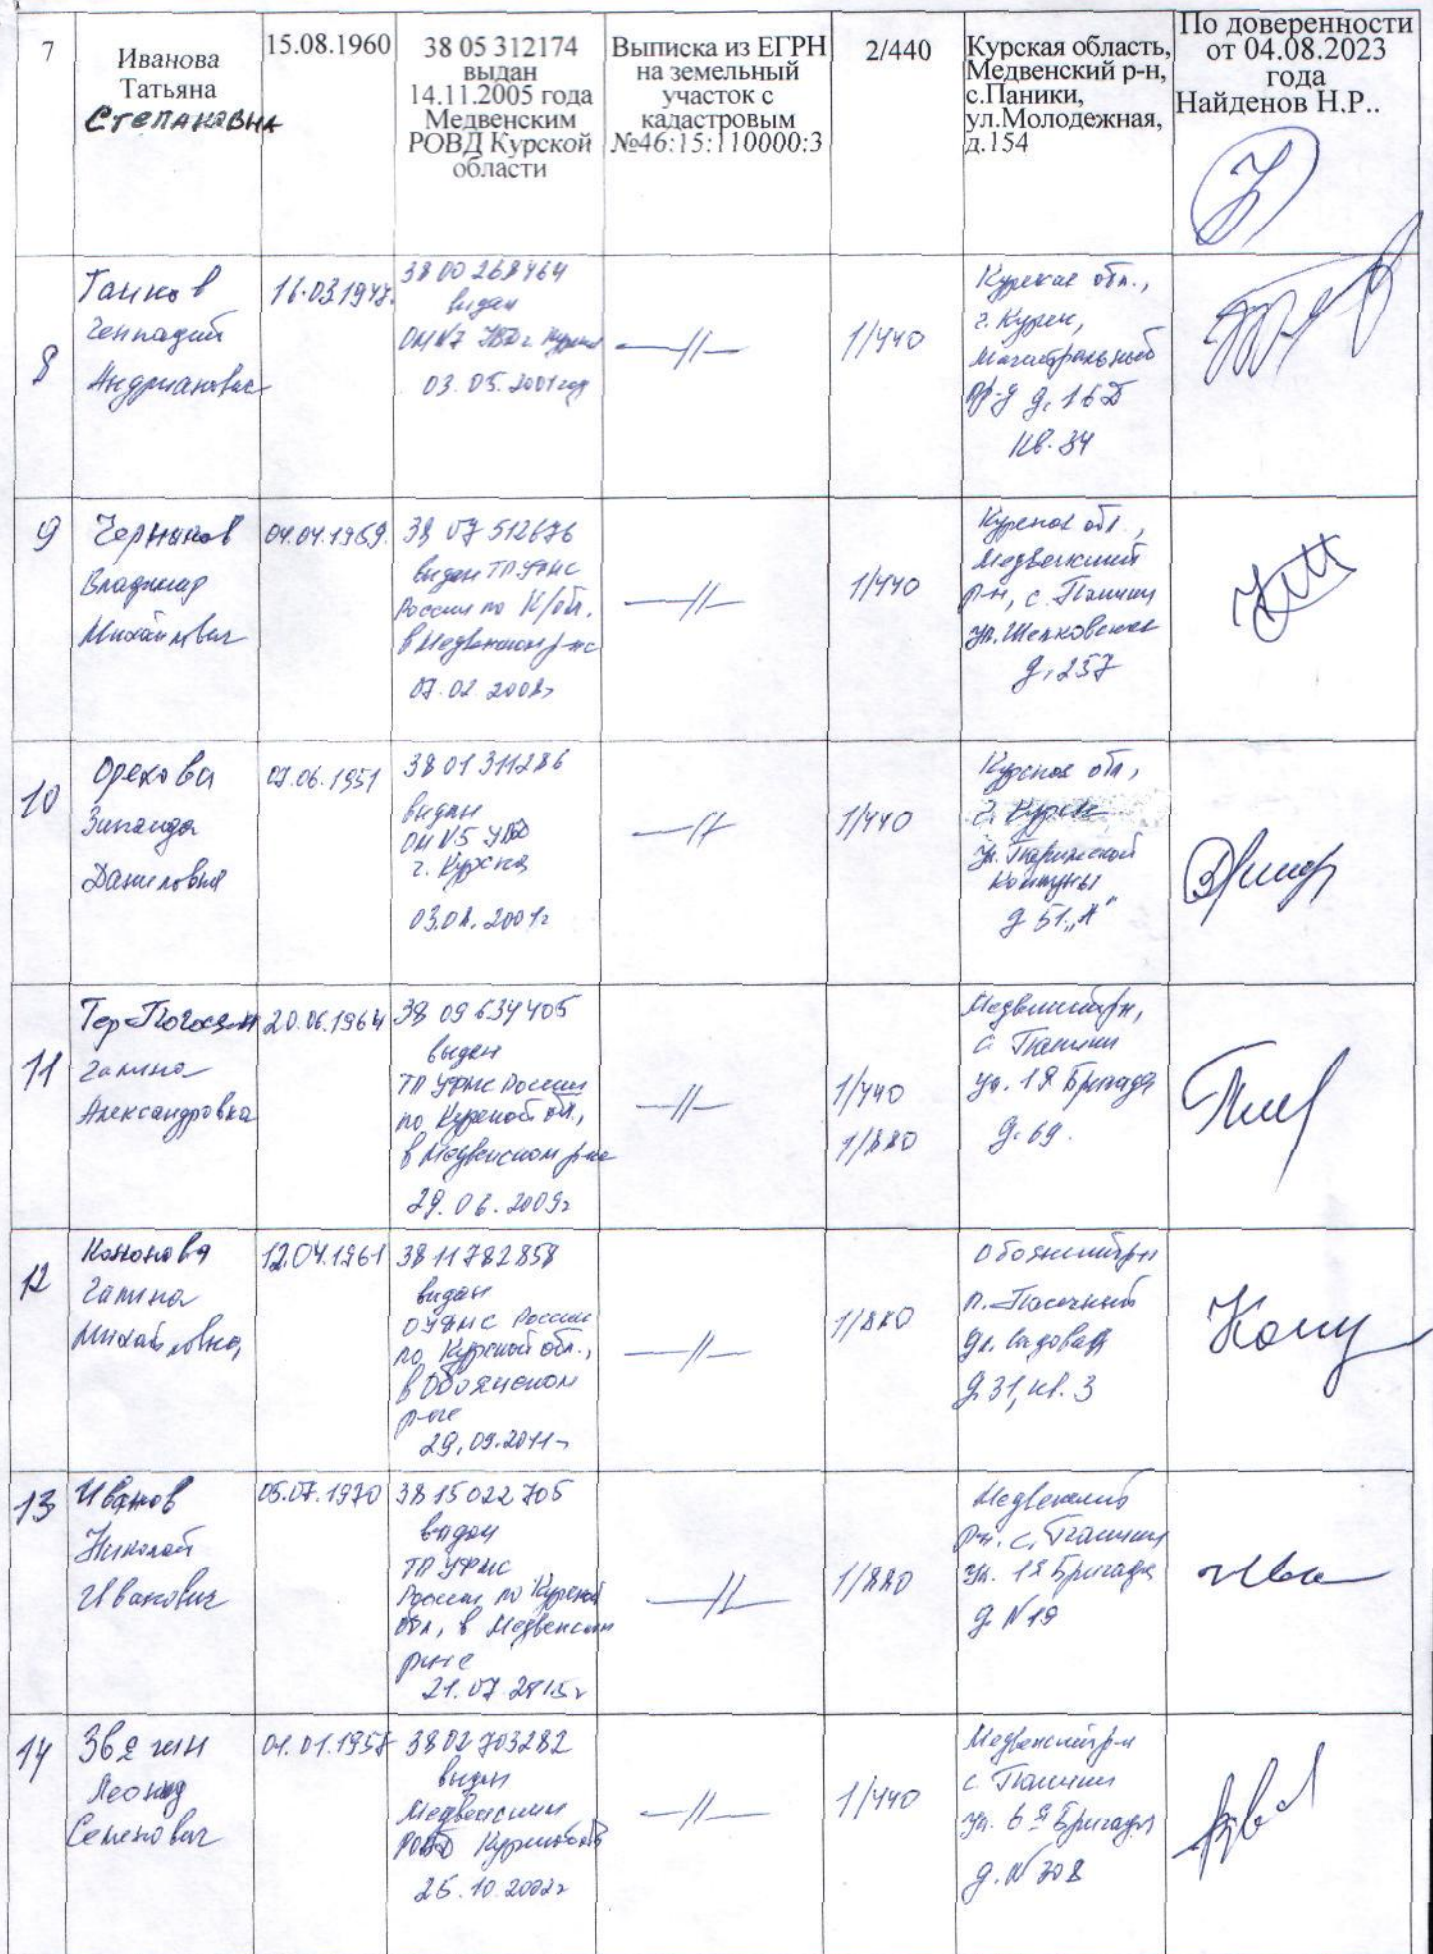 7
Иванова
Татьяна
Степановна
15.08.1960
38 05 312174
выдан
14.11.2005 года
Медвенским
РОВД Курской
области
Выписка из ЕГРН
на земельный
участок с
кадастровым
№46:15:110000:3
2/440
Курская область,
Медвенский р-н,
с.Паники,
ул.Молодежная,
д.154
По доверенности
от 04.08.2023
года
Найденов Н.Р..
8
Геннадий
Андрианович
38 00 268464
выдан
ОМ №7 УВД г. Курска
03.05.2001 год
—//—
1/440
Курская обл.,
г. Курск,
Магистральный
пр-д д. 16Д
кв. 34
9
Владимир
Михайлович
04.04.1969.
38 07 512676
выдан ТП УФМС
России по К/обл.
в Медвенском р-не
07.02.2008г
—//—
1/440
Курская обл.,
Медвенский
р-н, с. Паники
ул.
д. 257
10
Орехова
Зинаида
Даниловна
07.06.1951
38 01 311286
выдан
ОМ №5 УВД
г. Курска
2001г
—//—
1/440
Курская обл,
г. Курск
ул. Парижской
Коммуны
д 51 „А"
11
Тер-Погосян
Галина
Александровна
20.06.1964
38 09 634405
выдан
ТП УФМС России
по Курской обл.,
в Медвенском р-не
29.06.2009г
—//—
1/440
1/880
Медвенский р-н,
с. Паники
ул. 1я Бригада
д. 69.
12
Кононова
Галина
Михайловна,
12.04.1961
38 11 782858
выдан
ОУФМС России
по Курской обл.,
в Обоянском
р-не
29.09.2011г
—//—
1/880
Обоянский р-н
п. Пасечный
ул. Садовая
д. 31, кв. 3
13
Иванов
Николай
Иванович
05.07.1970
38 15 022705
выдан
ТП УФМС
России по Курской
обл, в Медвенском
р-не
21.07.2015г
—//—
1/880
Медвенский
р-н. с. Паники
ул. 1я Бригада
д. №19
14
Звягин
Леонид
Семенович
38 02 703282
выдан
Медвенским
РОВД Курской обл
25.10.2002г
—//—
1/440
Медвенский р-н
с. Паники
ул. 6я Бригада
д. №308